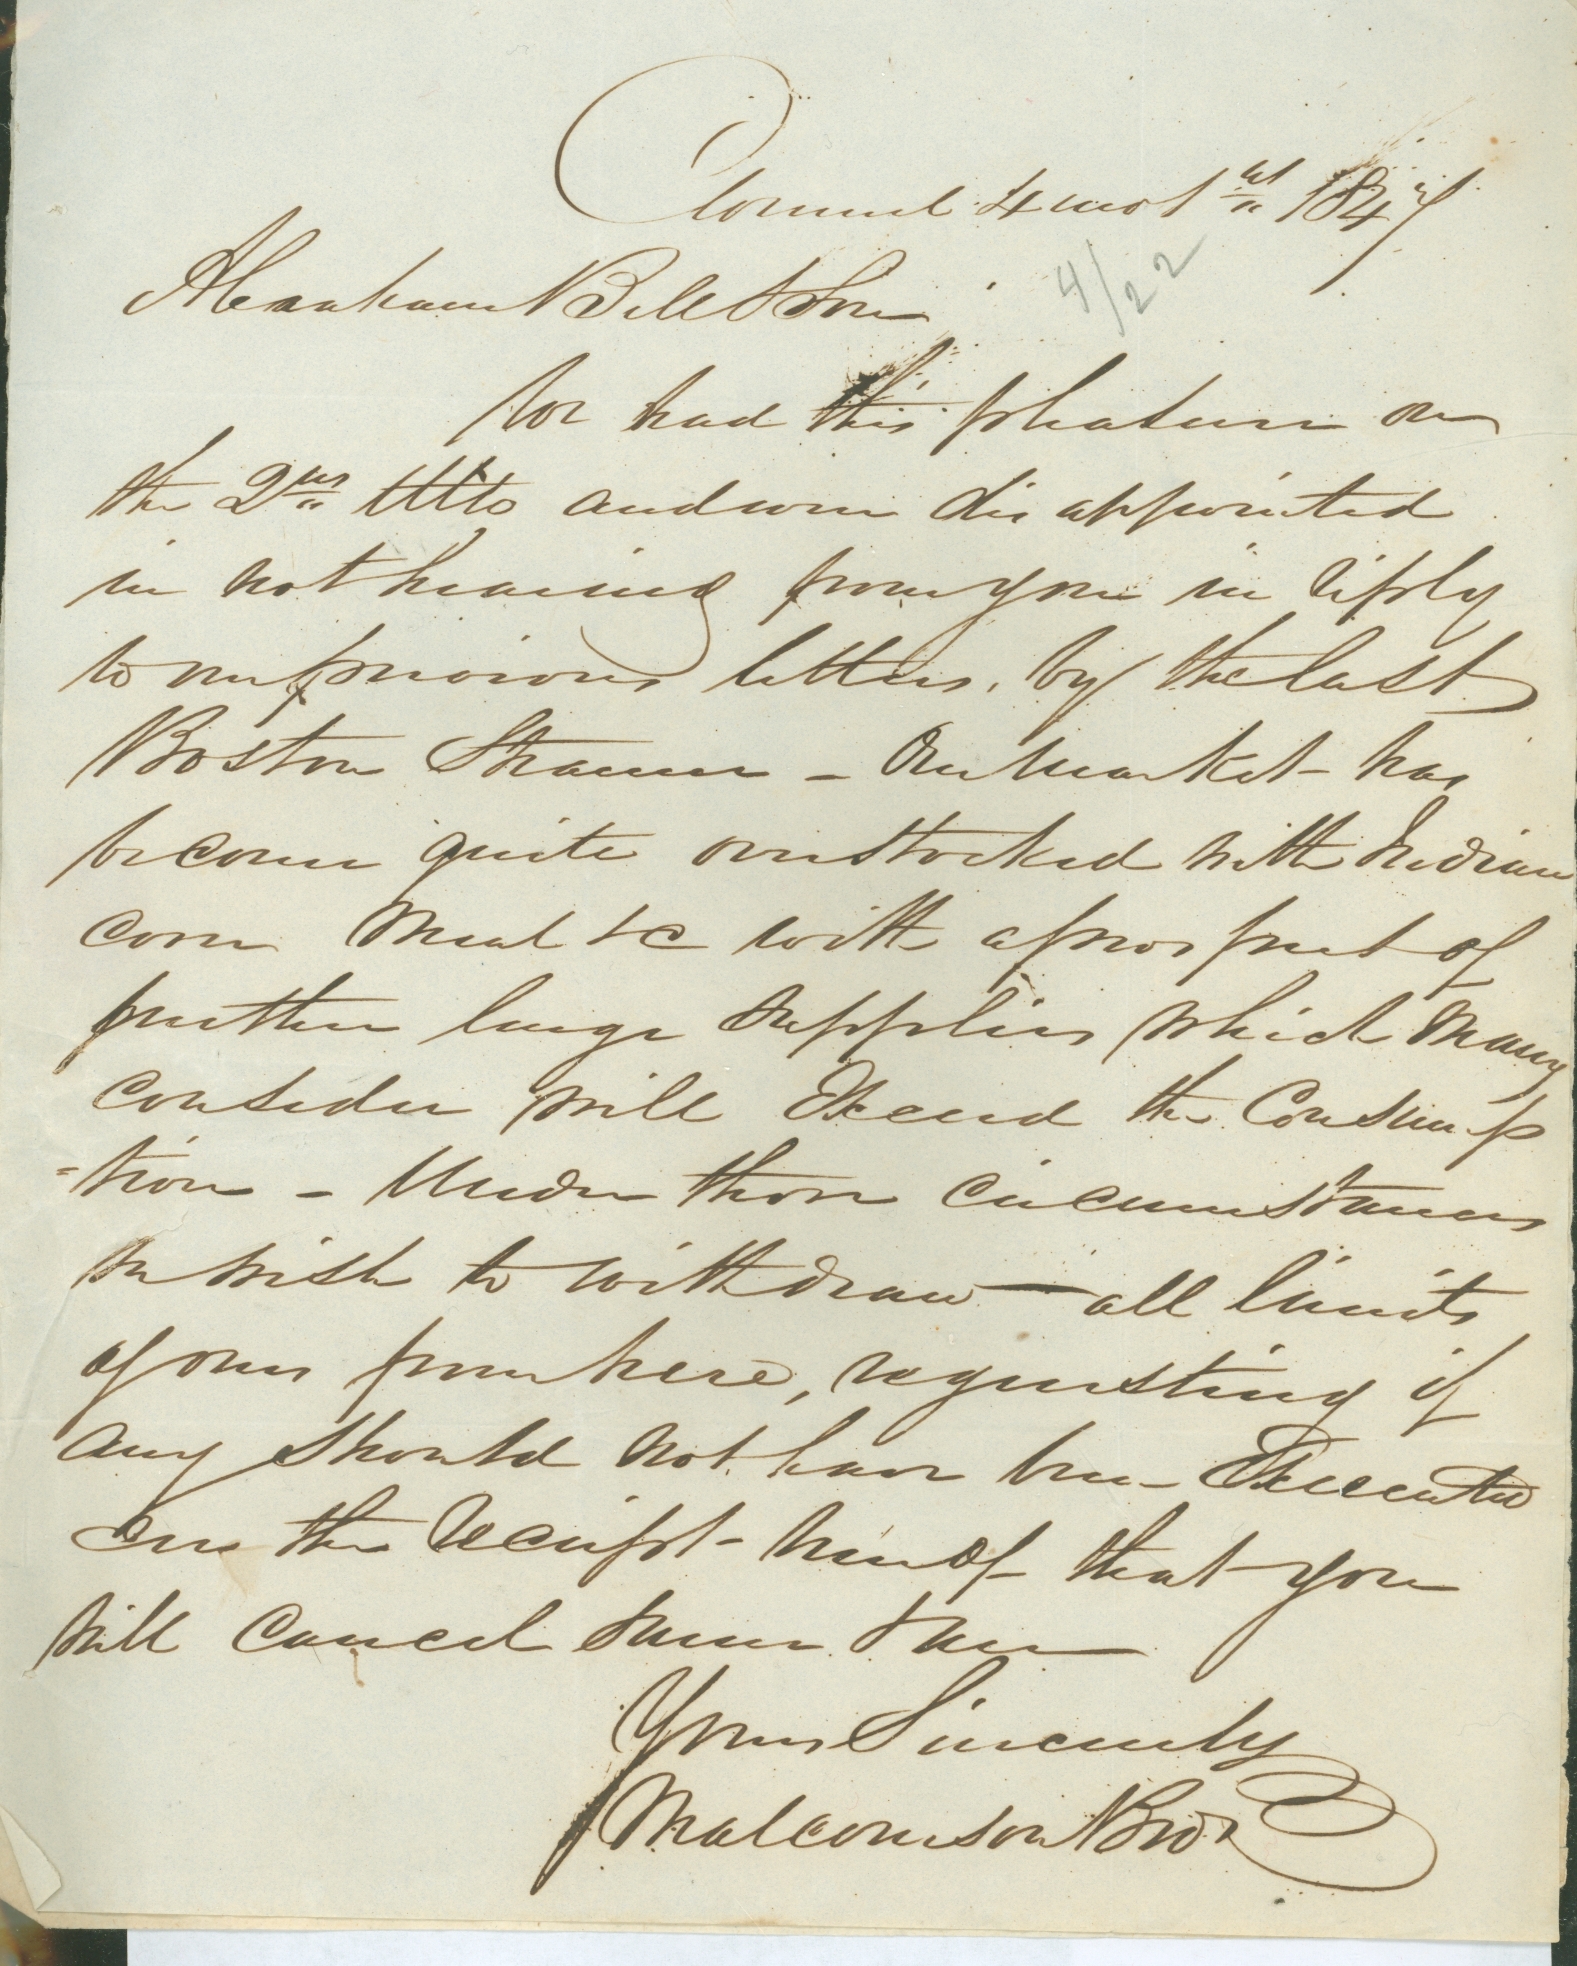 Clonmel 4 mo 1st 1847
4/22
Abraham Bell & Son
We had this pleasure on
the 2nd Ulto and were disappointed
in not hearing from you in reply
to our previous letters, by the last
Boston Steamer - Our Market has
become quite overstocked with Indian
corn Meal &c with a prospect of
further large supplies which many
consider will Exceed the Consump
=tion - Under these circumstances
we wish to withdraw - all limits
of ours from here, requesting if
any should not have been Executed
on the receipt hereof that you
will cancel same & are
Yours Sincerely
Malcomson Bros